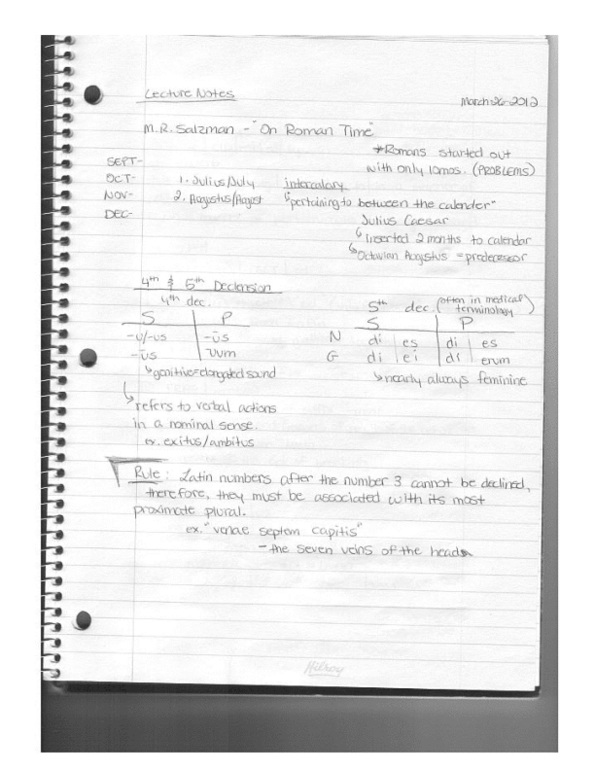 Lecture Notes
March 26 2012
M.R. Salzman - "On Roman Time"
*Romans started out
with only 10mos. (PROBLEMS)
SEPT-
OCT- 1. Julius/July intercalary
NOV- 2. Augustus/August "pertaining to between the calender"
DEC- Julius Caesar
Inserted 2 months to calendar
Octavian Augustus = predecessor
4th & 5th Declension
4th dec.
S P
-u/-us -ūs
-ūs -uum
genitive=elongated sound
5th dec. (often in medical terminology)
S P
N di es di es
G di ei di erum
nearly always feminine
refers to verbal actions
in a nominal sense.
ex. exitus/ambitus
Rule: Latin numbers after the number 3 cannot be declined,
therefore, they must be associated with its most
proximate plural.
ex. "venae septem capitis"
- the seven veins of the head
Hilroy